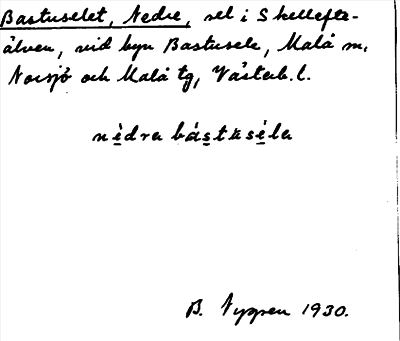 Bastuselet, Nedre, sel i Skellefte-
älven, vid byn Bastusele, Malå m.
Norsjö och Malå tg, Västerb. l.
nèdra bástusèla
B. Nygren 1930.